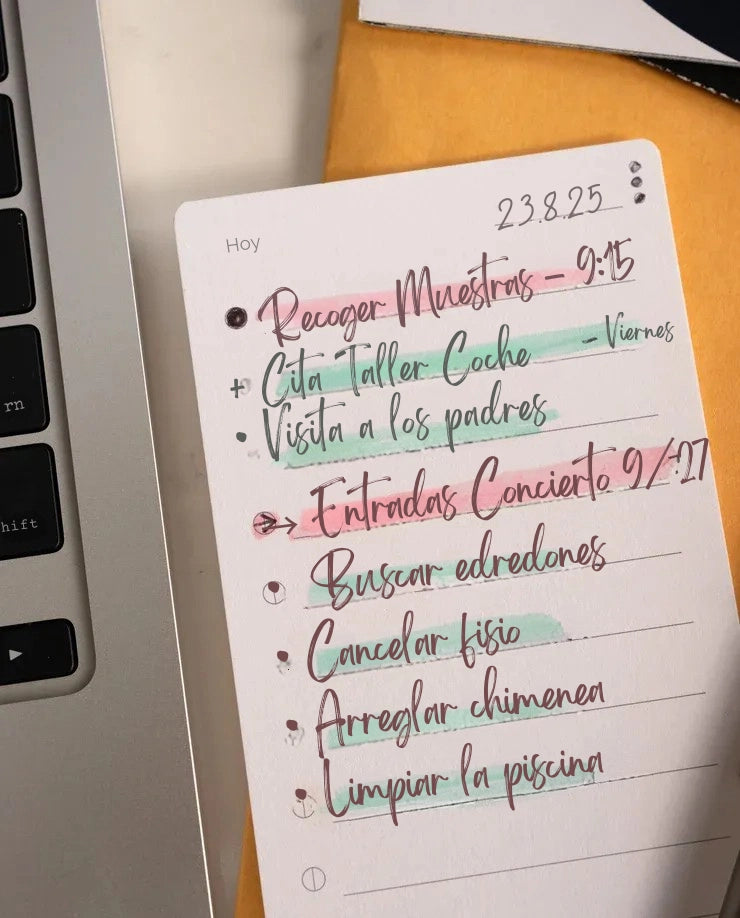 rn
hift
Hoy
23.8.25
Recoger Muestras - 9:15
+ Cita Taller Coche - Viernes
• Visita a los padres
→ Entradas Concierto 9/-27
Buscar edredones
• Cancelar fisio
• Arreglar chimenea
• Limpiar la piscina